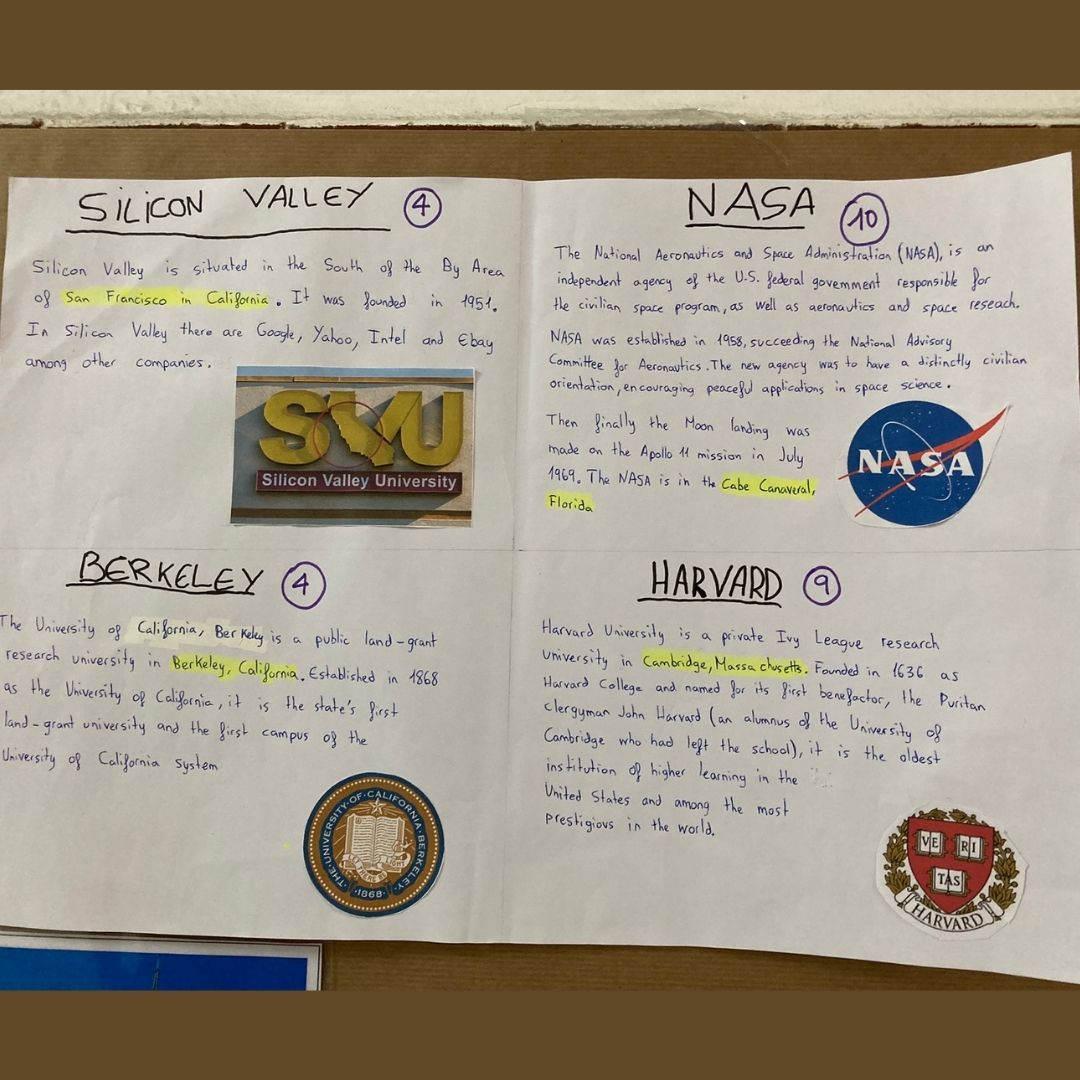 SILICON VALLEY 4
Silicon Valley is situated in the South of the By Area
of San Francisco in California. It was founded in 1951.
In Silicon Valley there are Google, Yahoo, Intel and Ebay
among other companies.
SVU
Silicon Valley University
NASA 10
The National Aeronautics and Space Administration (NASA), is an
independent agency of the U.S. federal government responsible for
the civilian space program, as well as aeronautics and space reseach.
NASA was established in 1958, succeeding the National Advisory
Committee for Aeronautics. The new agency was to have a distinctly civilian
orientation, encouraging peaceful applications in space science.
Then finally the Moon landing was
made on the Apollo 11 mission in July
1969. The NASA is in the Cabe Canaveral,
Florida
NASA
BERKELEY 4
The University of California, Berkeley is a public land-grant
research university in Berkeley, California. Established in 1868
as the University of California, it is the state's first
land-grant university and the first campus of the
University of California system
THE·UNIVERSITY·OF·CALIFORNIA·BERKELEY·
LET THERE BE LIGHT
·1868·
HARVARD 9
Harvard University is a private Ivy League research
university in Cambridge, Massachusetts. Founded in 1636 as
Harvard College and named for its first benefactor, the Puritan
clergyman John Harvard (an alumnus of the University of
Cambridge who had left the school), it is the oldest
institution of higher learning in the
United States and among the most
prestigious in the world.
VE RI
TAS
HARVARD